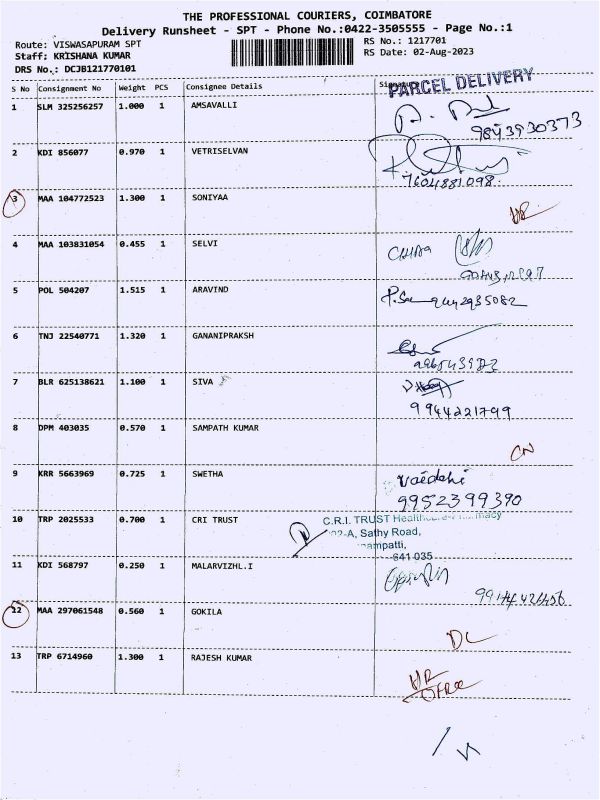 THE PROFESSIONAL COURIERS, COIMBATORE
Delivery Runsheet - SPT - Phone No.:0422-3505555 - Page No.:1
Route: VISWASAPURAM SPT
RS No.: 1217701
Staff: KRISHANA KUMAR
RS Date: 02-Aug-2023
DRS No.: DCJB121770101
S No Consignment No Weight PCS Consignee Details
PARCEL DELIVERY
1 SLM 325256257 1.000 1 AMSAVALLI
9843930373
2 KDI 856077 0.970 1 VETRISELVAN
7604881098
3 MAA 104772523 1.300 1 SONIYAA
4 MAA 103831054 0.455 1 SELVI
5 POL 504207 1.515 1 ARAVIND
6 TNJ 22540771 1.320 1 GANANIPRAKSH
7 BLR 625138621 1.100 1 SIVA
9944221799
8 DPM 403035 0.570 1 SAMPATH KUMAR
CN
9 KRR 5663969 0.725 1 SWETHA
Vaidehi
9952399390
10 TRP 2025533 0.700 1 CRI TRUST
C.R.I. TRUST
Sathy Road,
641 035
11 KDI 568797 0.250 1 MALARVIZHL.I
12 MAA 297061548 0.560 1 GOKILA
DL
13 TRP 6714960 1.300 1 RAJESH KUMAR